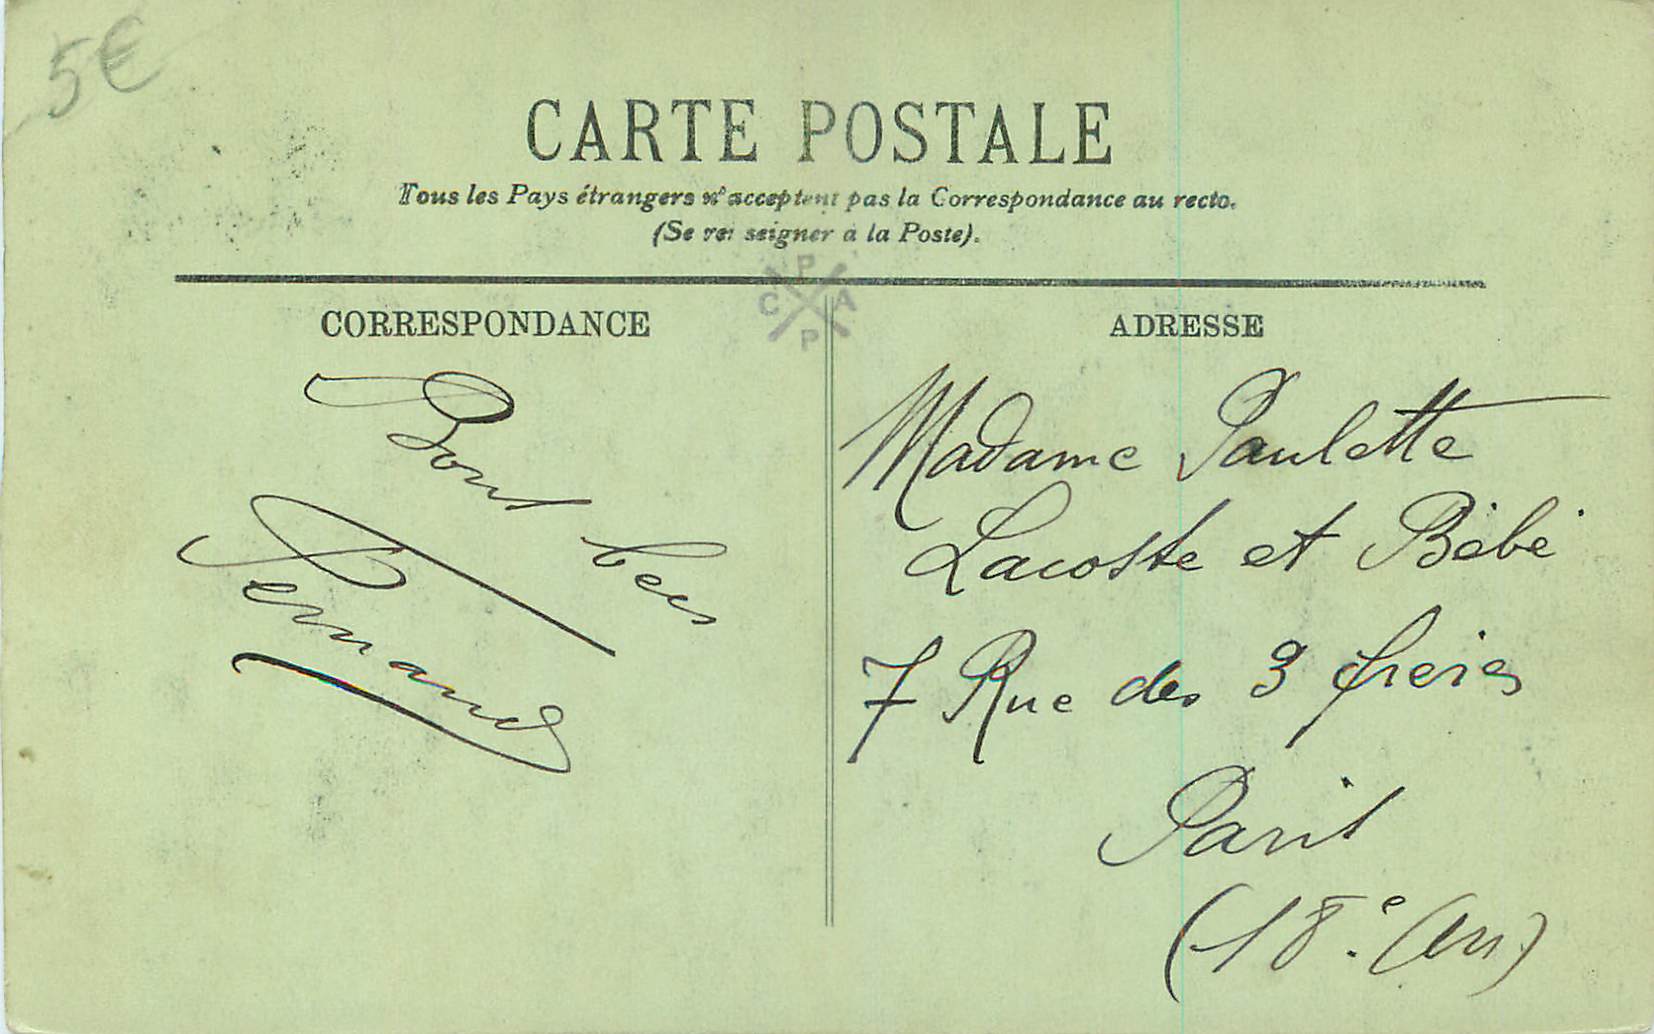 5€
CARTE POSTALE
Tous les Pays étrangers n'acceptent pas la Correspondance au recto.
(Se renseigner à la Poste).
P
C A
P
CORRESPONDANCE
ADRESSE
Bons becs
Fernand
Madame Paulette
Lacoste et Bébé
7 Rue des 3 frères
Paris
(18e. Arr)